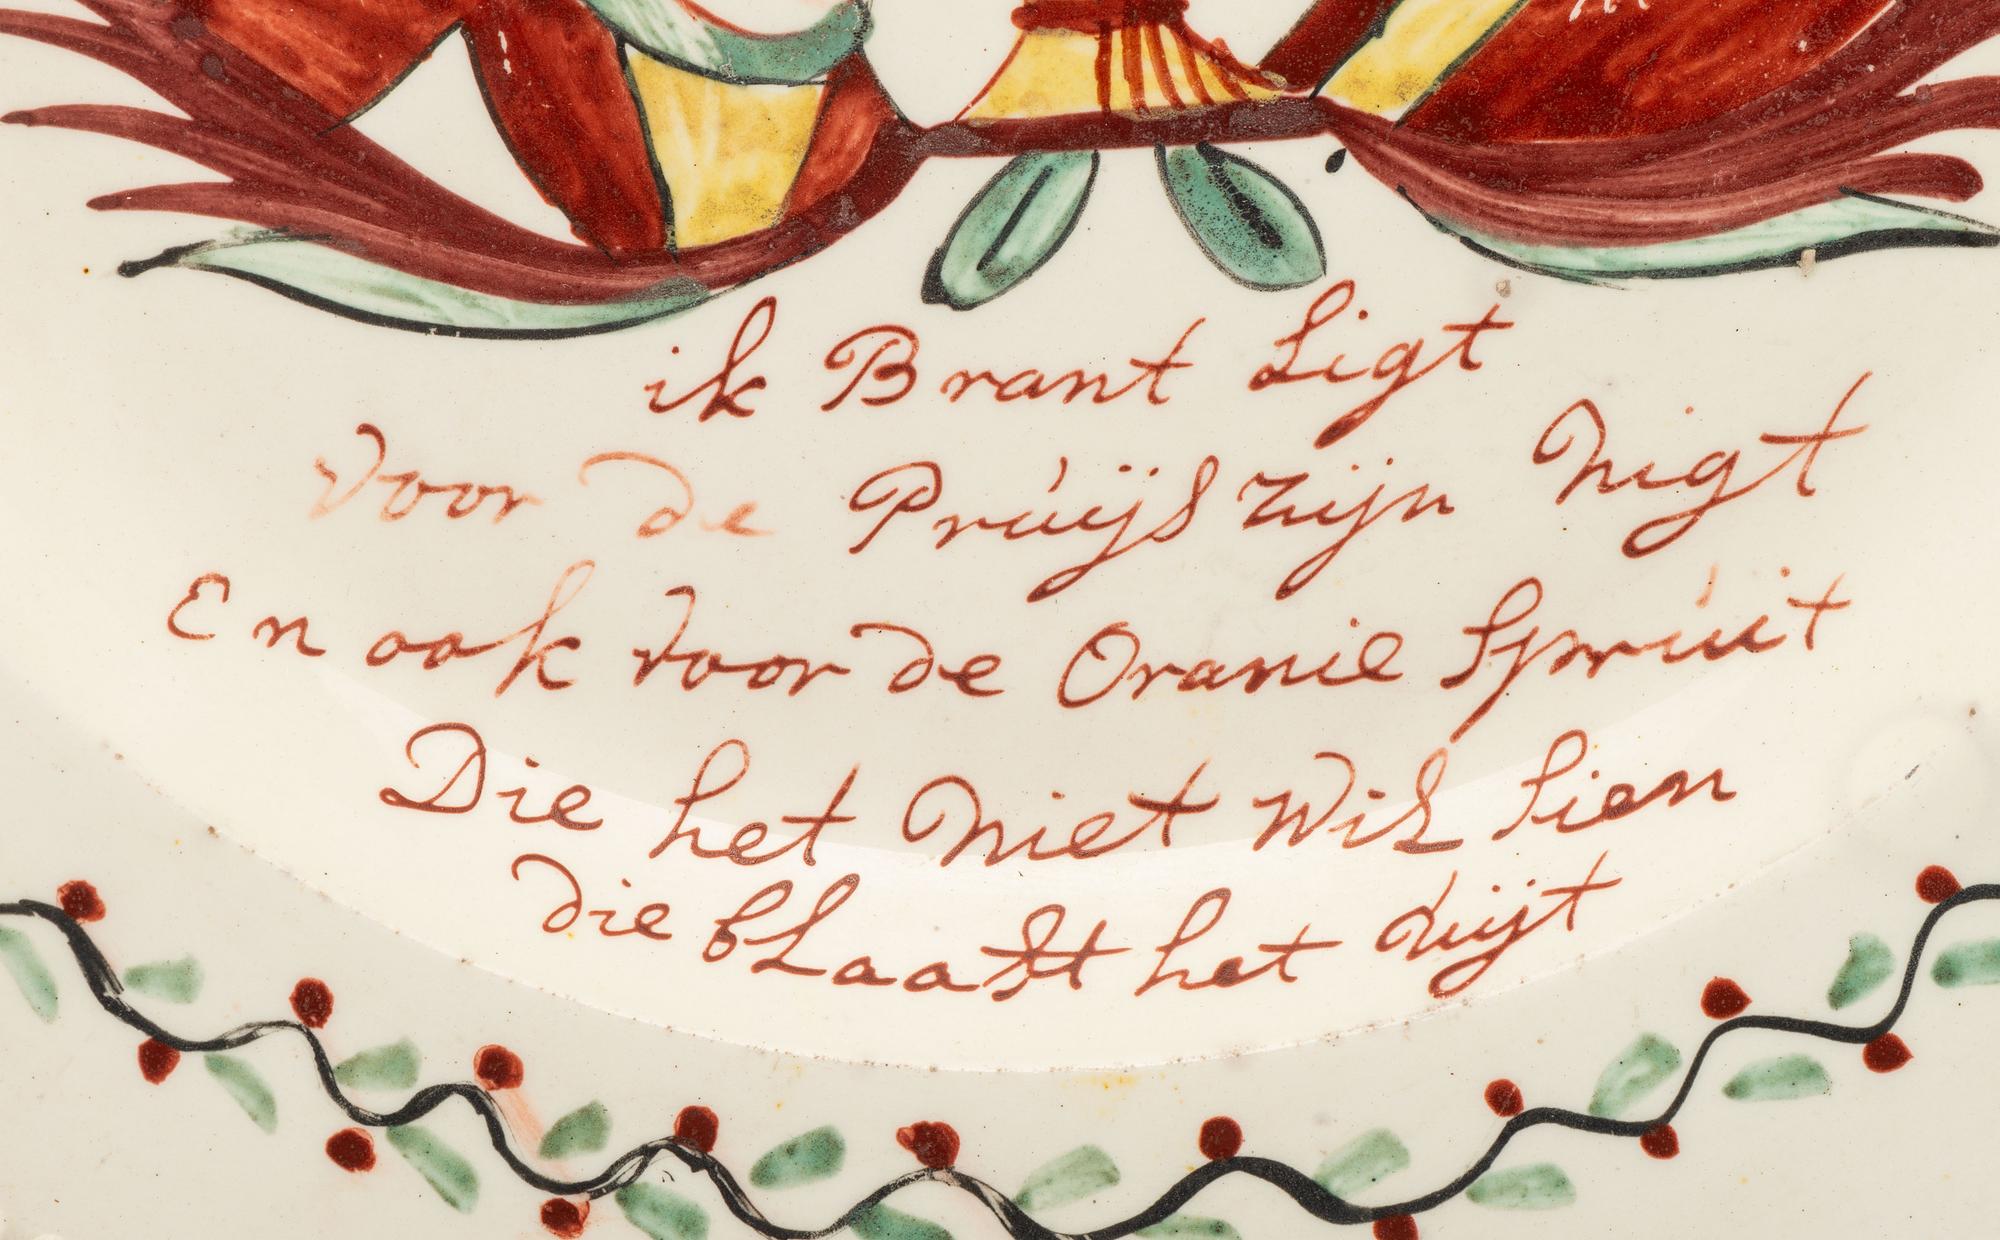 ik Brant Ligt
voor de Prúijs zijn Nigt
En ook voor de Oranie Sprúit
Die het Niet Wil Sien
die blaast het úijt